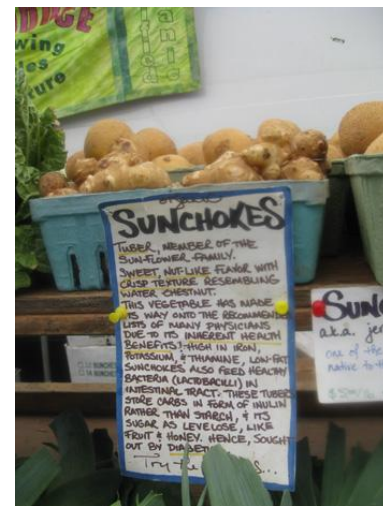 wing
les
ture
SUNCHOKES
TUBER, MEMBER OF THE
SUN-FLOWER FAMILY.
SWEET, NUT-LIKE FLAVOR WITH
CRISP TEXTURE RESEMBLING
WATER CHESTNUT.
THIS VEGETABLE HAS MADE
ITS WAY ONTO THE RECOMMENDED
LISTS OF MANY PHYSICIANS
DUE TO ITS INHERENT HEALTH
BENEFITS! HIGH IN IRON,
POTASSIUM, & THIAMINE, LOW-FAT
SUNCHOKES ALSO FEED HEALTHY
BACTERIA (LACTOBACILLI) IN
INTESTINAL TRACT. THESE TUBERS
STORE CARBS IN FORM OF INULIN
RATHER THAN STARCH, & ITS
SUGAR AS LEVELOSE, LIKE
FRUIT & HONEY. HENCE, SOUGHT
OUT BY
Try
SUN
a.k.a. je
one of the
native to th